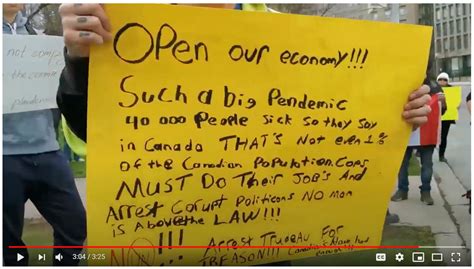 OPen our economy!!!
Such a big Pendemic
40 000 PeoPle Sick so they Say
in Canada THAT'S Not even 1%
of the Canadian PoPulation. Cops
MUST Do Their JoB's And
Arrest CoruPt Politicans NO man
is Above the LAW!!!
NOW!!! Arrest Trudeau FOR
TREASON!!!
not
3:04 / 3:25
CC